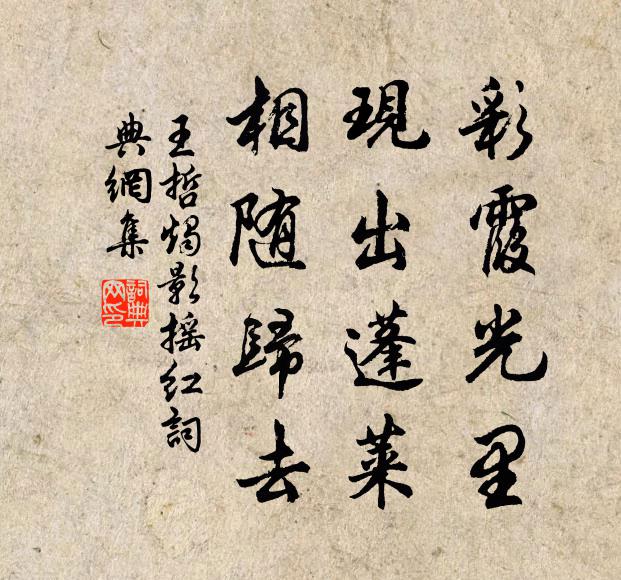 彩霞光里
現出蓬萊
相随歸去
王哲燭影摇红詞
典網集
詞典網印